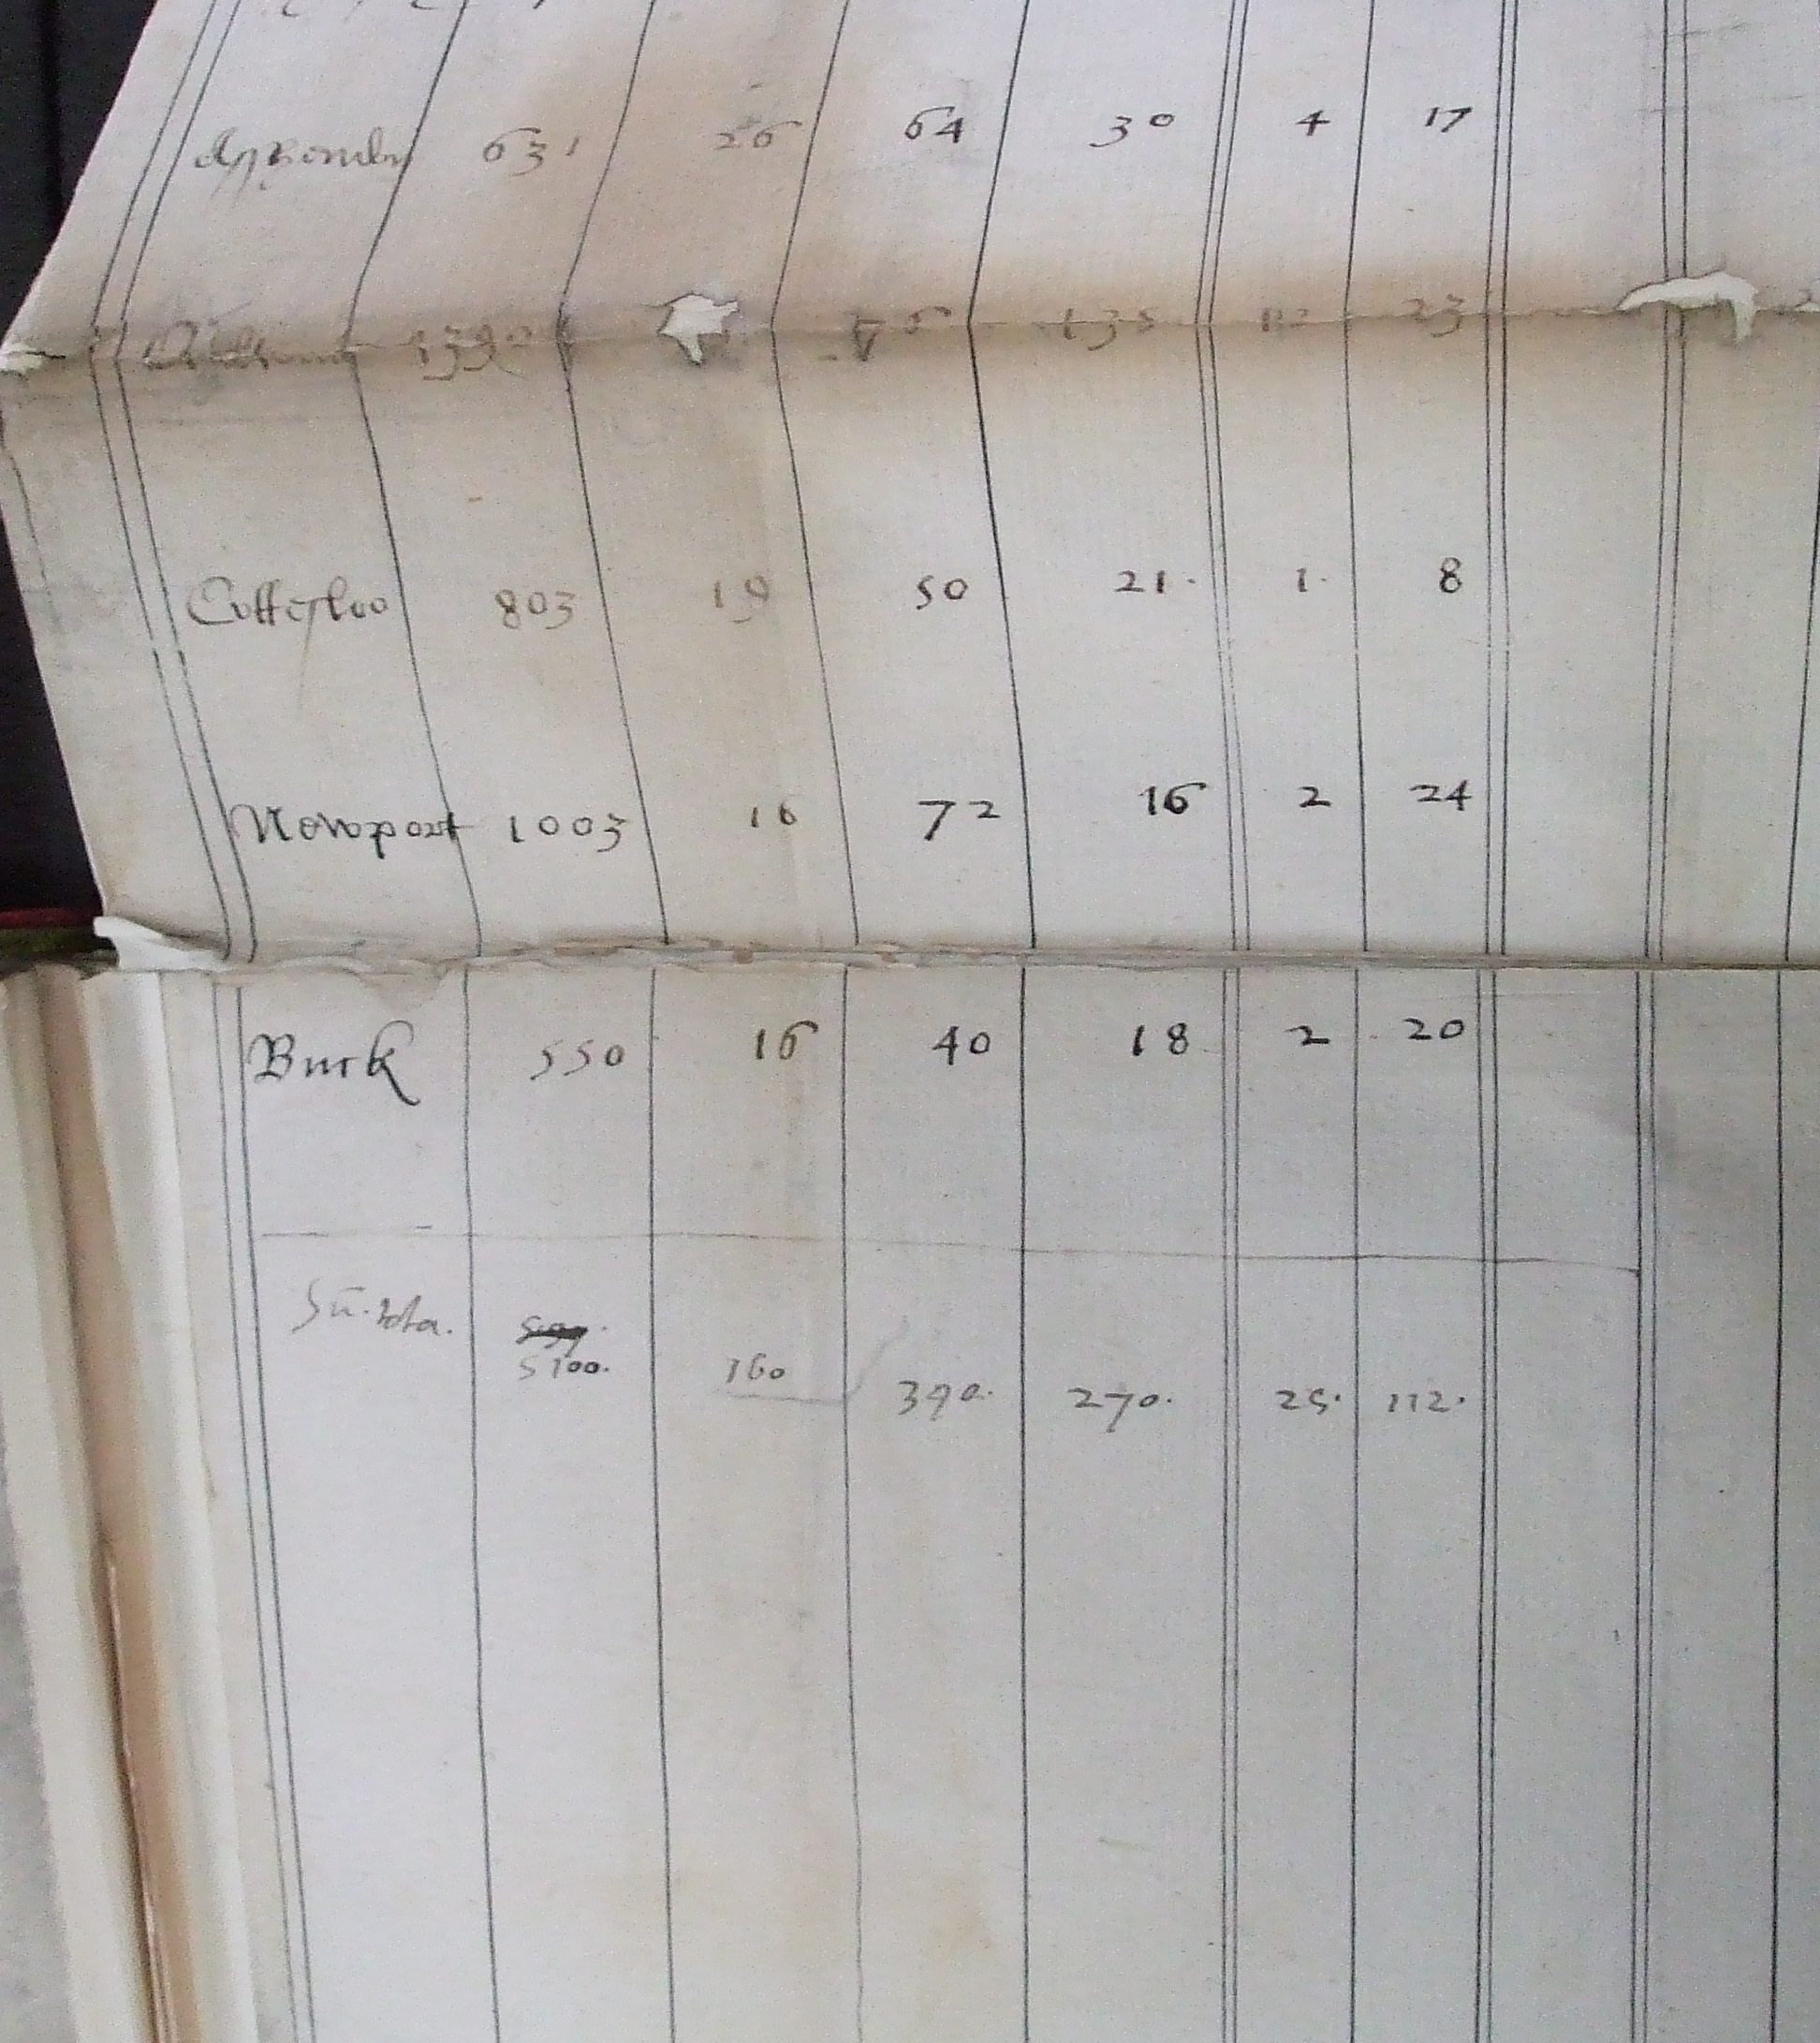 631 26 64 30 4 17
23
Cottesloo 803 19 50 21. 1. 8
Newport 1003 16 72 16 2 24
Buck 550 16 40 18 2 20
Sū. tota.
5100. 160 390. 270. 25. 112.